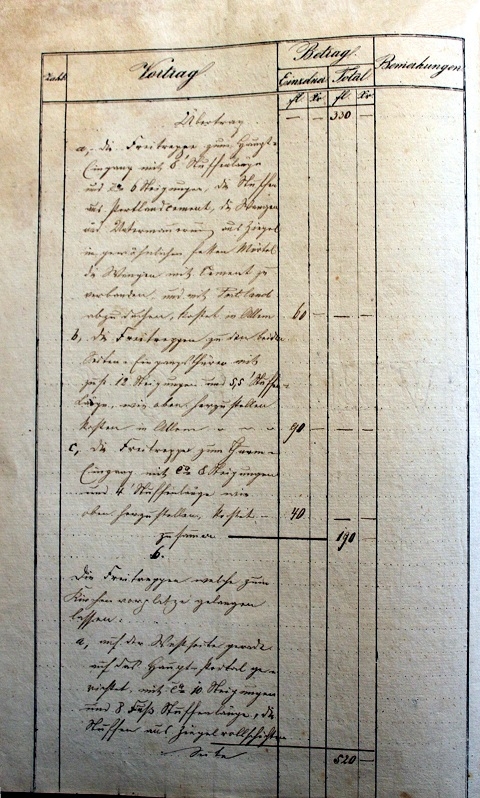 Zahl Vortrag Betrag Bemerkungen
Einzelner Total
fl Xr. fl Xr.
Übertrag — — 330 —
a, die Freitreppe zum Haupt-
Eingang mit 8' Stuffenlänge
und 6 Steigungen, die Stuffen
aus Portlandcement, die Wangen
und Untermauerung aus Ziegel
in gewöhnlichen fetten Mörtel
die Wangen mit Cement zu
verbanden, und mit Portland
abzudecken, kostet in Allem 60 — — —
b, die Freitreppen zu den beiden
Seiten-Eingangsthüren mit
12 Steigungen und 5,5' Stuffen-
länge, wie oben herzustellen
kosten in Allem — — — 90 — — —
c, die Freitreppe zum Thurm-
Eingang mit 8 Steigungen
und 4' Stuffenlänge wie
oben herzustellen, kostet — 40 — —
zusamen 190 —
6.
Die Freitreppen welche zum
Kirchenvorplatze gelangen
lassen:
a, auf der Westseite gerade
auf das Haupt-Portal ge-
richtet, mit 10 Steigungen
und 8 Fuß Stuffenlänge, die
Stuffen aus Ziegelrollschichten
Seite 520 —